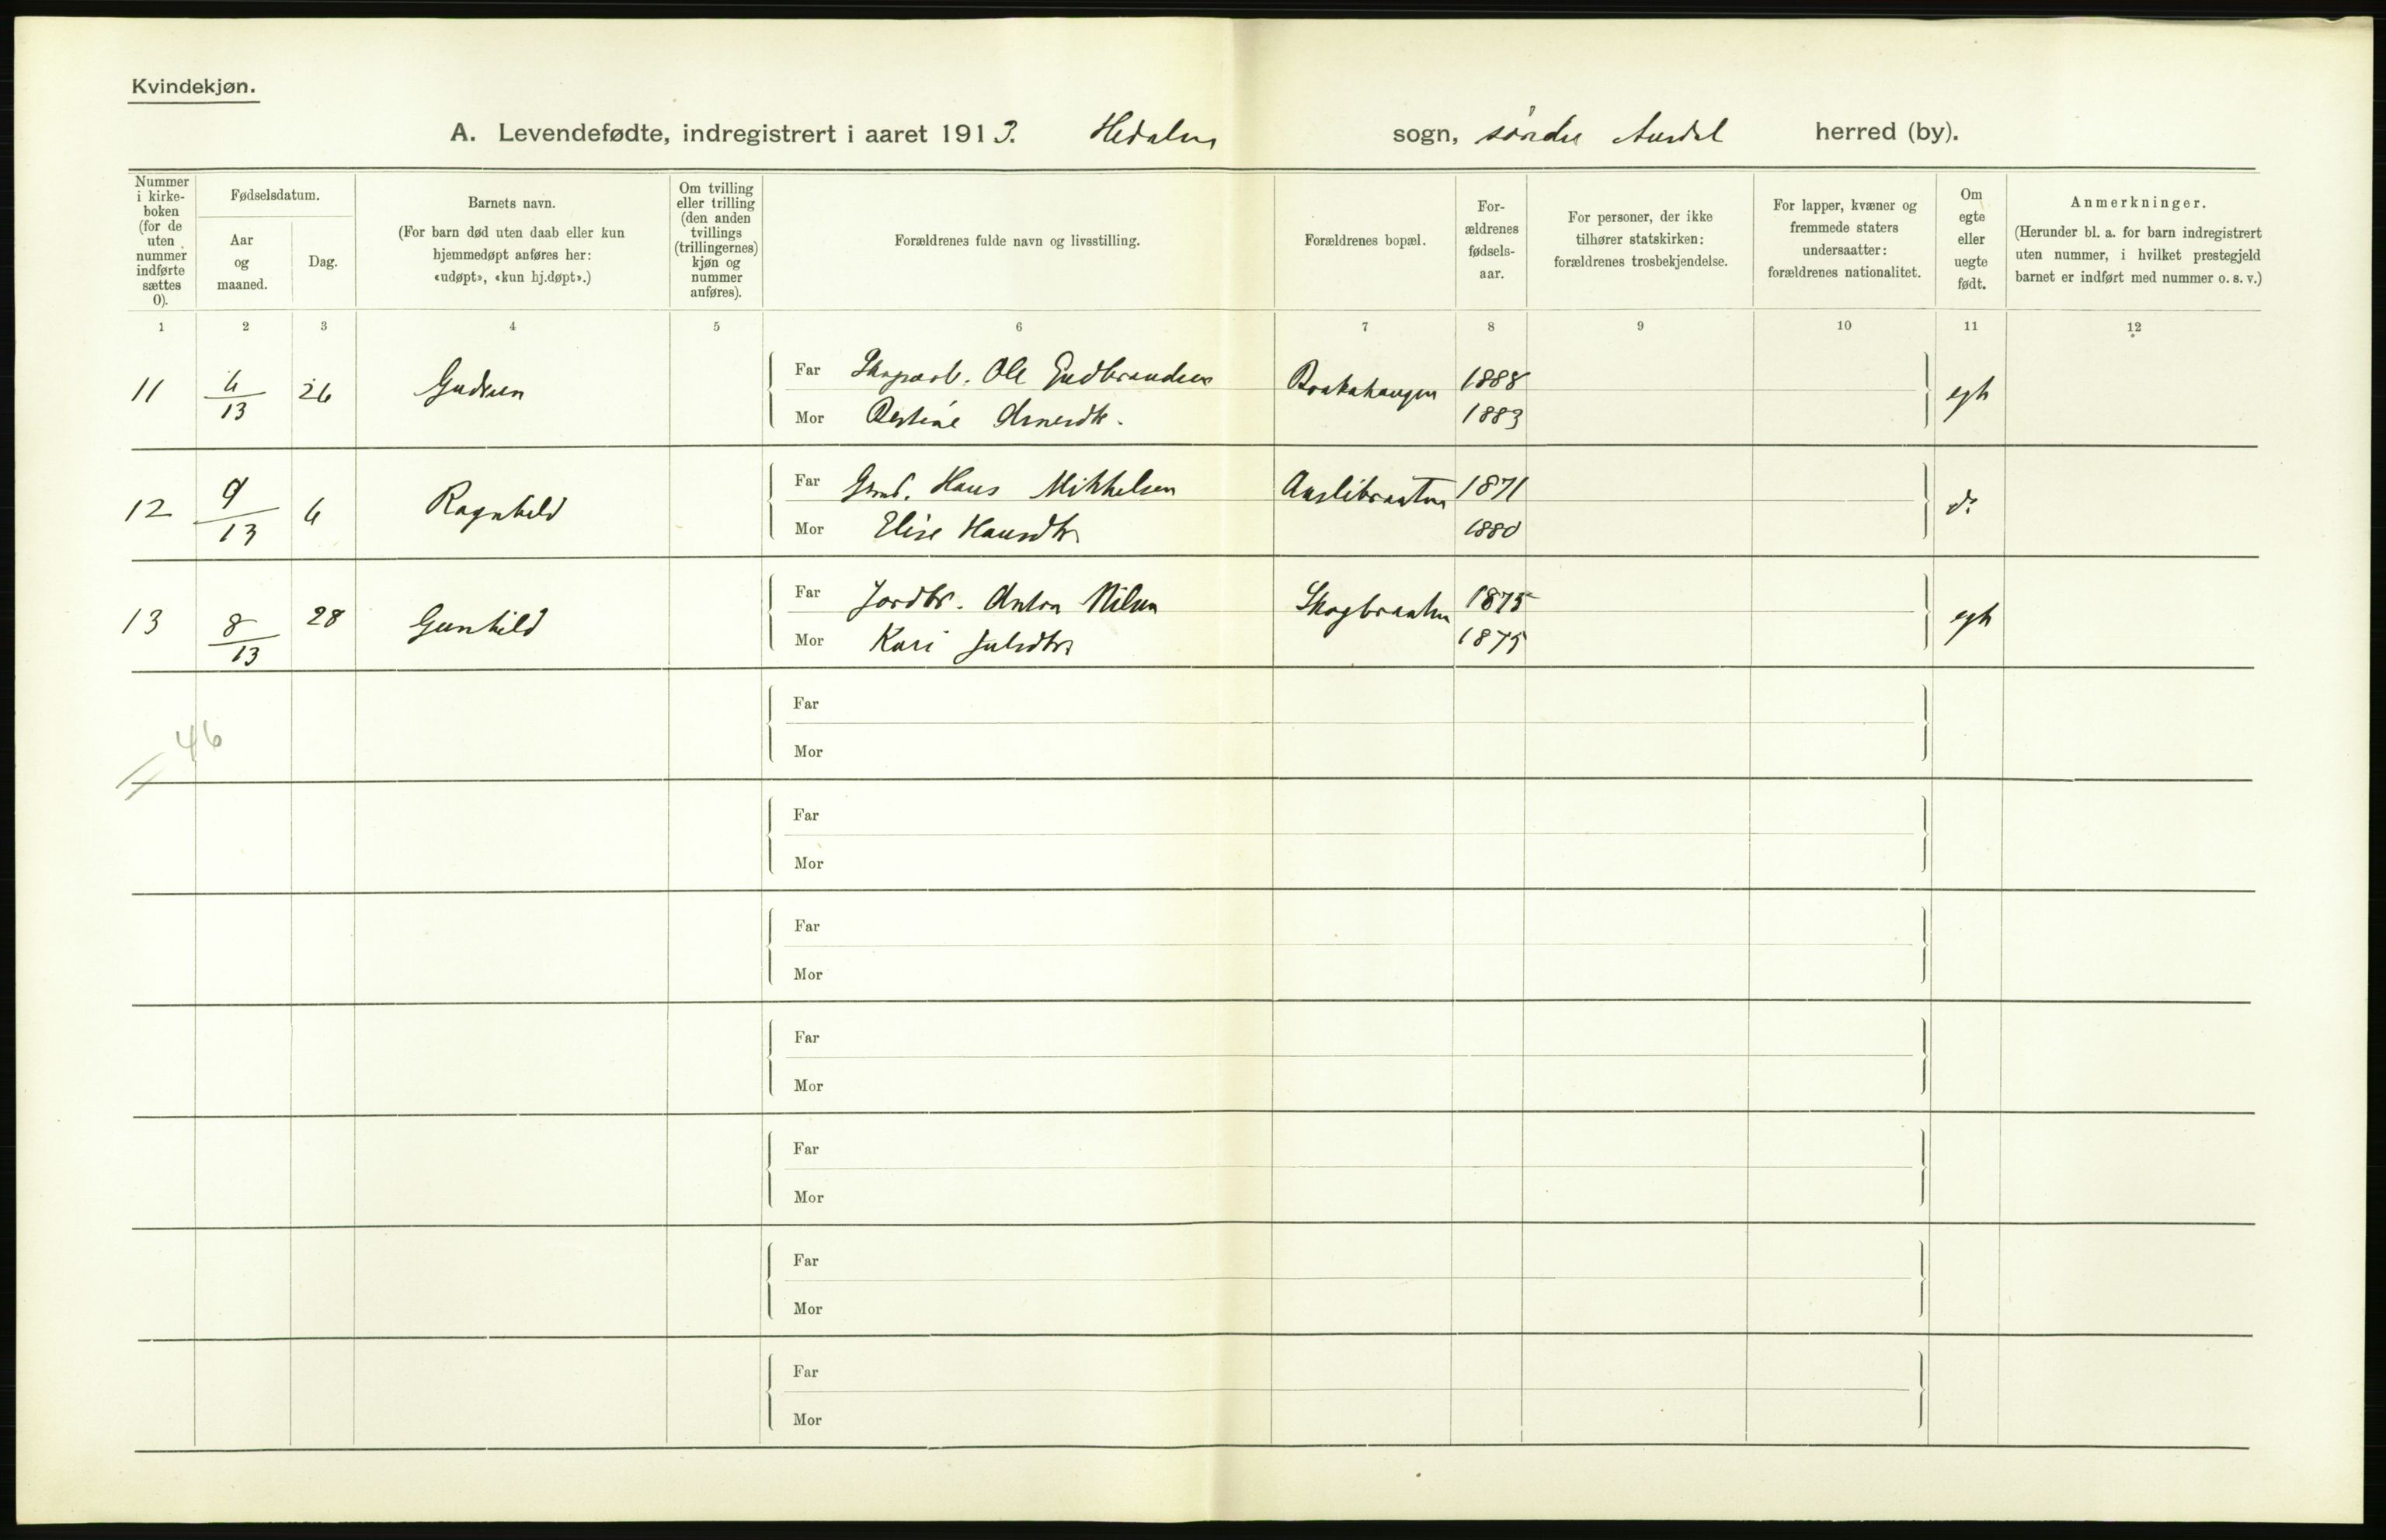 Kvindekjøn.
A. Levendefødte, indregistrert i aaret 1913. Hedalen sogn, søndre Aurdal herred (by).
Nummer i kirke-boken (for de uten nummer indførte sættes 0).
Fødselsdatum.
Aar og maaned.
Dag.
Barnets navn.
(For barn død uten daab eller kun hjemmedøpt anføres her: «udøpt», «kun hj.døpt».)
Om tvilling eller trilling (den anden tvillings (trillingernes) kjøn og nummer anføres).
Forældrenes fulde navn og livsstilling.
Forældrenes bopæl.
For-ældrenes fødsels-aar.
For personer, der ikke tilhører statskirken: forældrenes trosbekjendelse.
For lapper, kvæner og fremmede staters undersaatter: forældrenes nationalitet.
Om egte eller uegte født.
Anmerkninger.
(Herunder bl. a. for barn indregistrert uten nummer, i hvilket prestegjeld barnet er indført med nummer o. s. v.)
1 2 3 4 5 6 7 8 9 10 11 12
11 6/13 26 Gudrun Far Skogsarb. Ole Gudbrandsen 1888 egte
Mor Arnesdtr. 1883
12 9/13 6 Ragnhild Far Grmd. Hans Mikkelsen Auslibraaten 1871 do
Mor Elise Hansdtr 1880
13 8/13 28 Gunhild Far Jordbr. Anton Nilsen Skogbraaten 1875 egte
Mor Kari Julsdtr 1875
46
Far
Mor
Far
Mor
Far
Mor
Far
Mor
Far
Mor
Far
Mor
Far
Mor